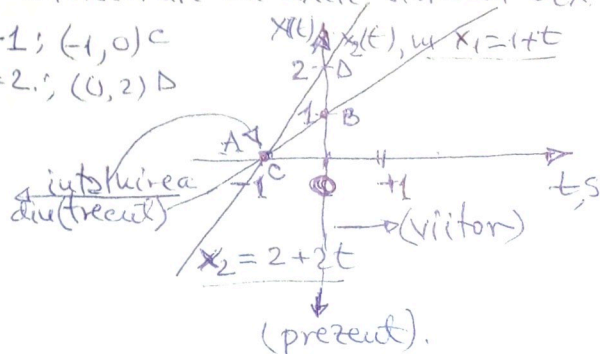 1; (-1,0) C
2.; (0,2) D
X(t) x₂(t), m x₁=1+t
2 D
1 B
A C
-1 0 +1 t,s
întâlnirea
din (trecut)
(viitor)
x₂ = 2 + 2t
(prezent).